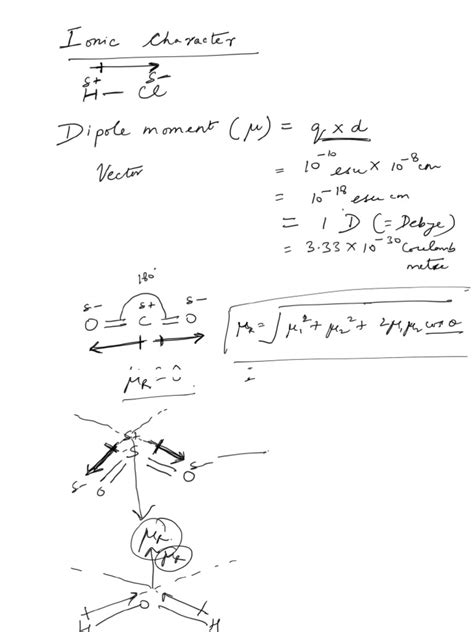 Ionic Character
δ+ δ-
H - Cl
Dipole moment (μ) = q x d
Vector = 10⁻¹⁰ esu x 10⁻⁸ cm
= 10⁻¹⁸ esu cm
= 1 D (= Debye)
= 3.33 x 10⁻³⁰ Coulomb
metre
180°
δ- δ+ δ-
O = C = O
μR = √μ₁² + μ₂² + 2μ₁μ₂ cos θ
μR = 0
δ+
S
δ- O O δ-
μR
μR
O
H H